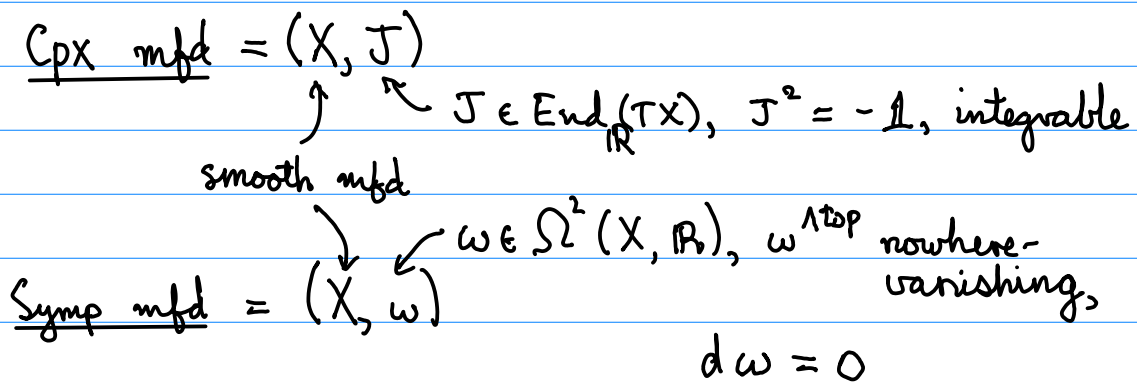 Cpx mfd = (X, J)
J ∈ End_ℝ(TX), J² = -𝟙, integrable
smooth mfd
ω ∈ Ω²(X, ℝ), ω^{∧top} nowhere-
vanishing,
Symp mfd = (X, ω)
dω = 0